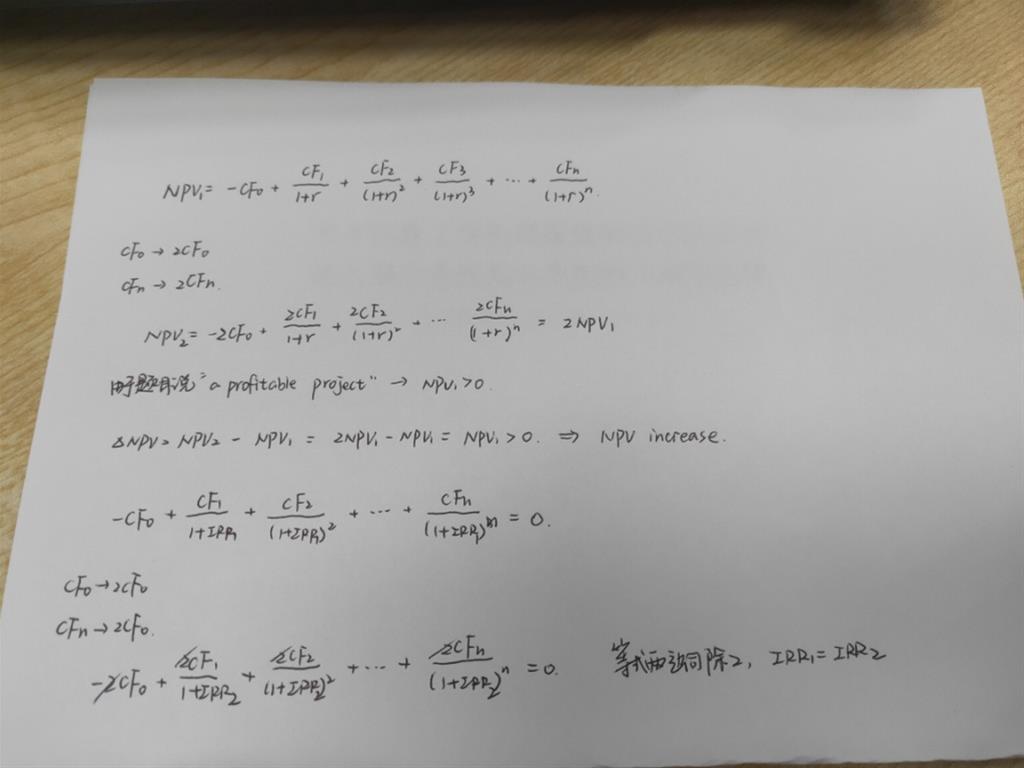 NPV₁ = -CF₀ + CF₁/(1+r) + CF₂/(1+r)² + CF₃/(1+r)³ + ... + CFn/(1+r)ⁿ.
CF₀ → 2CF₀
CFn → 2CFn.
NPV₂ = -2CF₀ + 2CF₁/(1+r) + 2CF₂/(1+r)² + ... 2CFn/(1+r)ⁿ = 2NPV₁
由于题目说“a profitable project” → NPV₁>0.
ΔNPV = NPV₂ - NPV₁ = 2NPV₁ - NPV₁ = NPV₁ > 0. ⇒ NPV increase.
-CF₀ + CF₁/(1+IRR₁) + CF₂/(1+IRR₁)² + ... + CFn/(1+IRR₁)ⁿ = 0.
CF₀ → 2CF₀
CFn → 2CF₀.
-2CF₀ + 2CF₁/(1+IRR₂) + 2CF₂/(1+IRR₂)² + ... + 2CFn/(1+IRR₂)ⁿ = 0. 等式两边同除2, IRR₁ = IRR₂